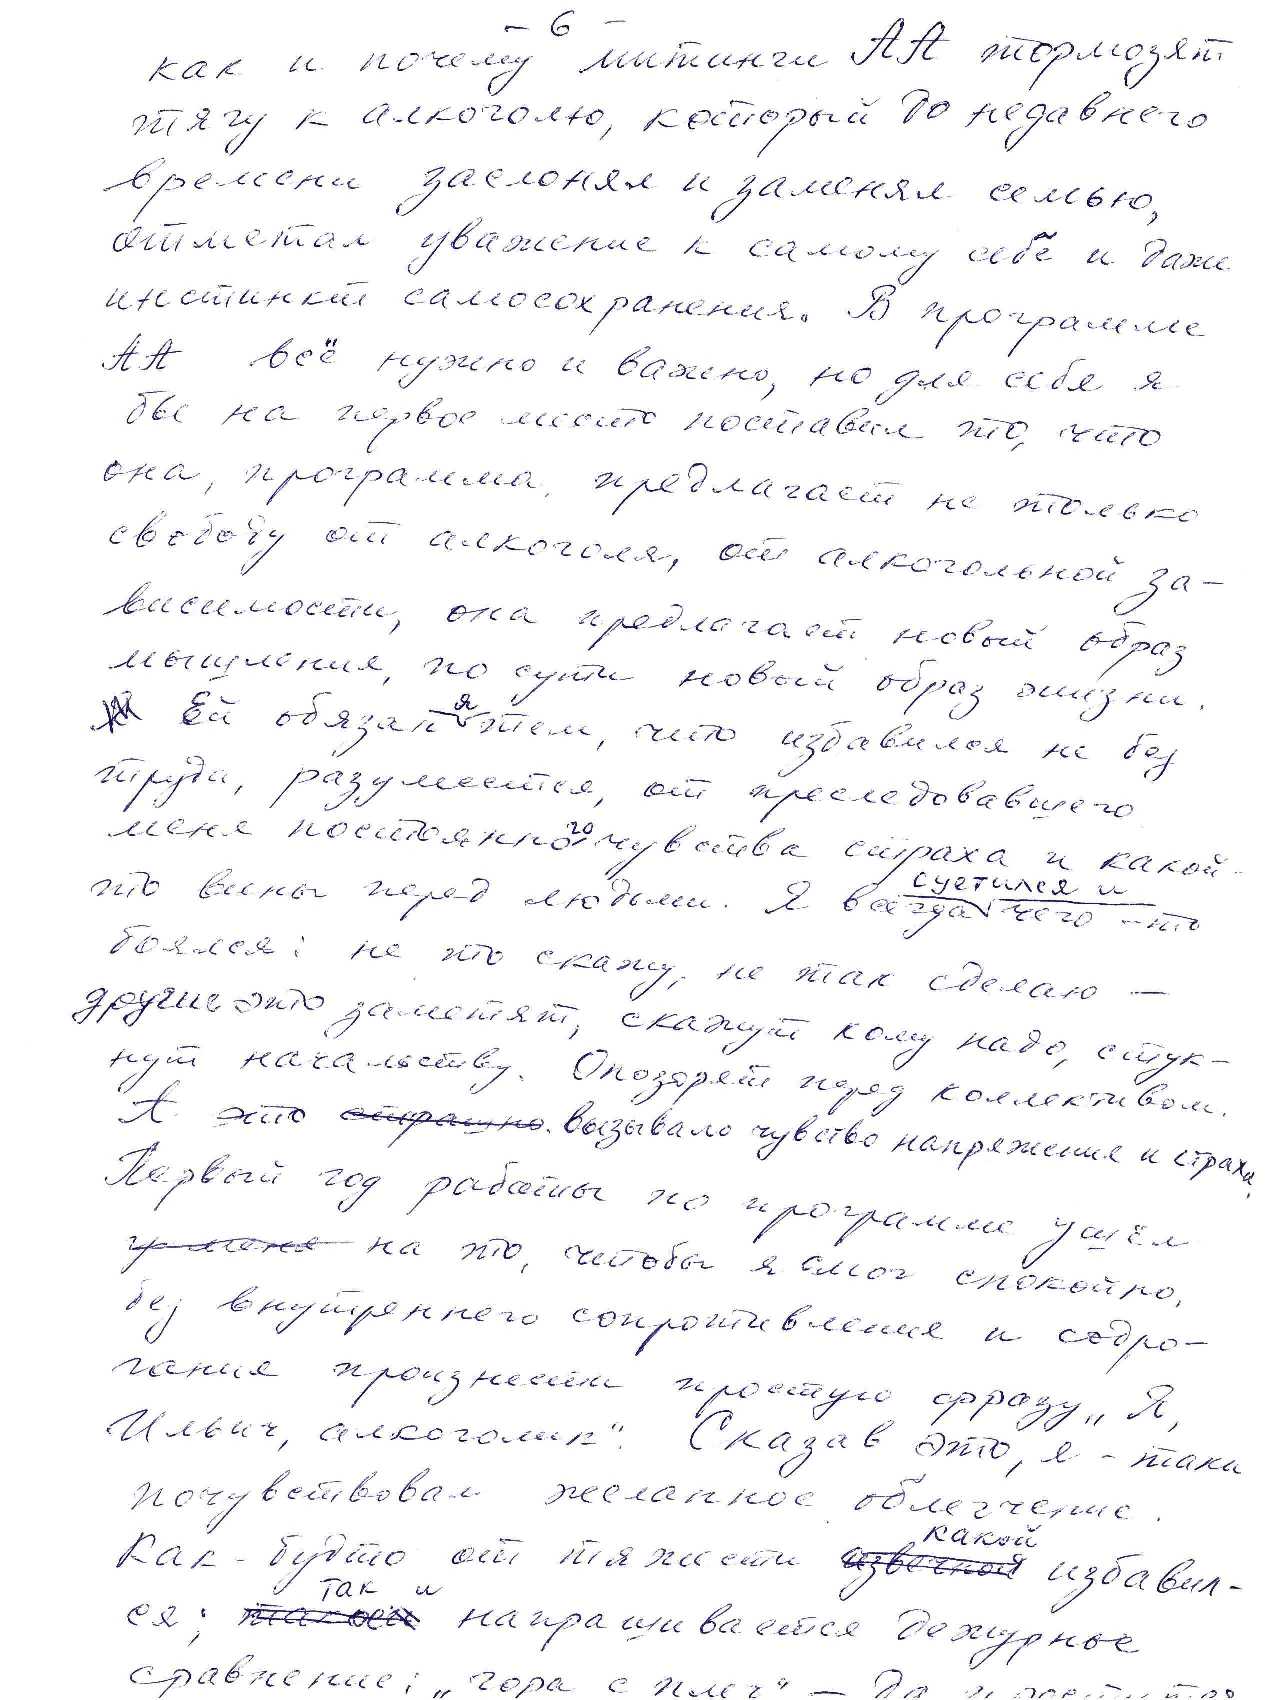 - 6 -
как и почему митинги АА тормозят
тягу к алкоголю, который до недавнего
времени заслонял и заменял семью,
отметал уважение к самому себе и даже
инстинкт самосохранения. В программе
АА всё нужно и важно, но для себя я
бы на первое место поставил то, что
она, программа, предлагает не только
свободу от алкоголя, от алкогольной за-
висимости, она предлагает новый образ
мышления, по сути новый образ жизни.
Ей обязан я тем, что избавился не без
труда, разумеется, от преследовавшего
меня постоянного чувства страха и какой-
то вины перед людьми. Я всегда суетился и чего-то
боялся: не то скажу, не так сделаю —
другие это заметят, скажут кому надо, стук-
нут начальству. Опозорят перед коллективом.
А это страшно. вызывало чувство напряжения и страха.
Первый год работы по программе ушёл
у меня на то, чтобы я смог спокойно,
без внутреннего сопротивления и содро-
гания произнести простую фразу „Я,
Ильич, алкоголик“. Сказав это, я-таки
почувствовал желанное облегчение.
Как-будто от тяжести извечной какой избавил-
ся; так и напрашивается дежурное
сравнение: „гора с плеч“ — да и